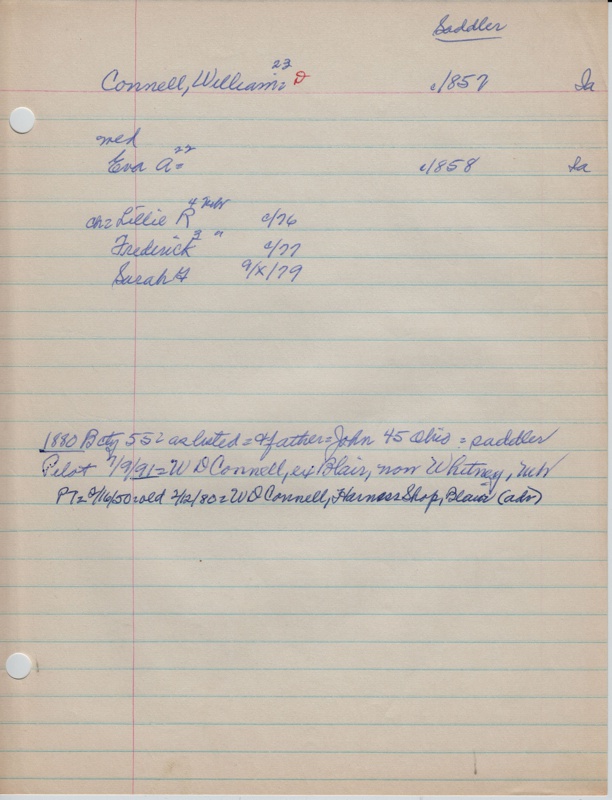 Saddler
Connell, William = 23 D c/1857 Ia
med
Eva A = 22 c/1858 Ia
ch = Lillie R 4 Nebr c/76
Frederick 3 " c/77
Sarah F 9/X/79
1880 Bcty 55² as listed = & father = John 45 Ohio = saddler
Pilot 7/9/91 = W D Connell, ex Blair, now Whitney, Nebr
PT = 2/16/50 = old 2/12/80 = W D Connell, Harness Shop, Blair (adv)